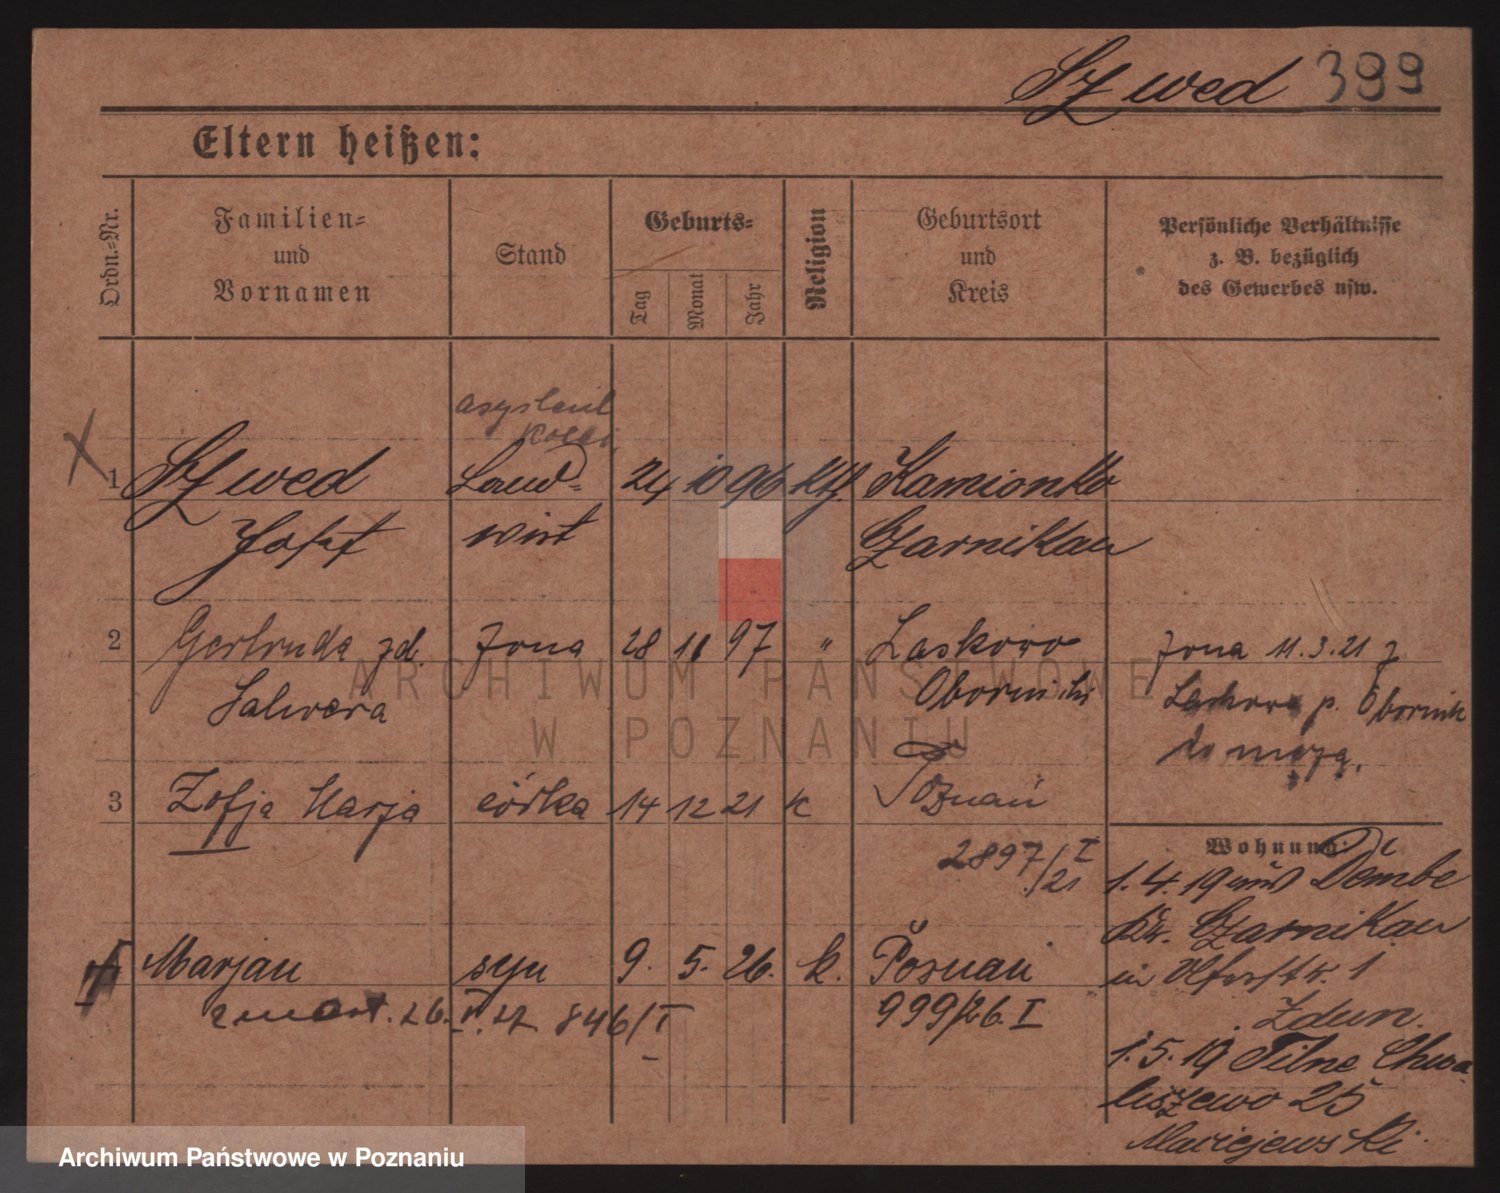 Szwed 399
Eltern heißen:
Ordn.=Nr.
Familien=
und
Vornamen
Stand
Geburts=
Tag
Monat
Jahr
Religion
Geburtsort
und
Kreis
Persönliche Verhältnisse
z. B. bezüglich
des Gewerbes usw.
asystent
X
1 Szwed Land= 24 10 96 kth Kamionka
Josef wirt Czarnikau
2 Gertruda zd. żona 28 11 97 " Laskowo żona 11.3.21 z
Salwera Obornicki Laskowa p. Obornik
do męża.
3 Zofja Marja córka 14 12 21 k Poznań
2897/21 I
Wohnung:
1.4.19 aus Dembe
Kr. Czarnikau
Marjan syn 9. 5. 26. k. Poznań
in 1
zmarł. 26. 27 846/I 999/26. I
Zdun.
1.5.19 Tilne Chwa-
liszewo 25
Maciejewski
ARCHIWUM PAŃSTWOWE
W POZNANIU
Archiwum Państwowe w Poznaniu